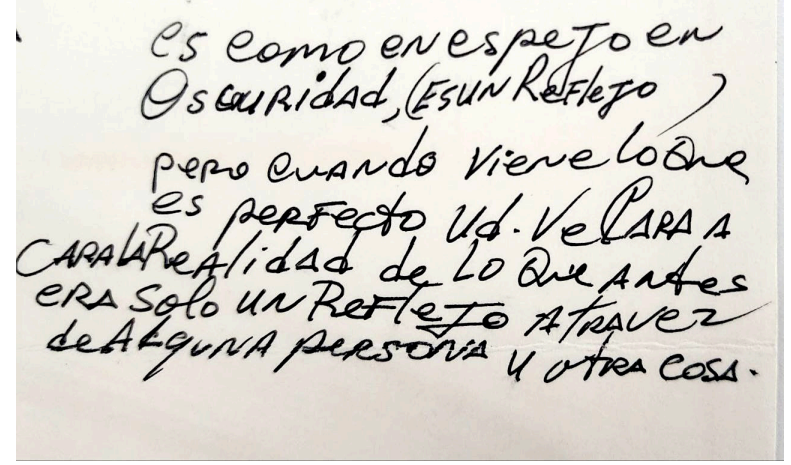 es como en espejo en
Oscuridad, (Es un Reflejo)
pero cuando viene lo que
es perfecto Ud. ve Cara a
Cara la Realidad de lo que antes
era solo un Reflejo atravez
de alguna persona u otra cosa.